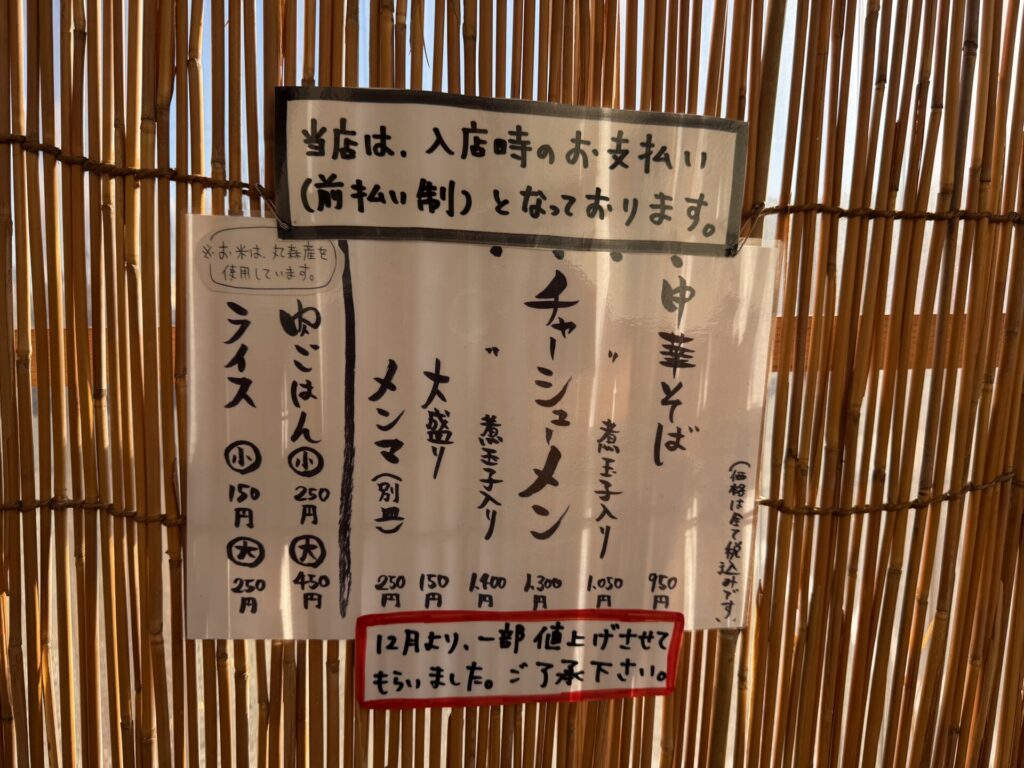 当店は、入店時のお支払い
(前払い制)となっております。
・中華そば 950円
・〃 煮玉子入り 1.050円
・チャーシューメン 1.300円
・〃 煮玉子入り 1.400円
大盛り 150円
メンマ(別皿) 250円
(価格は全て税込みです)
※お米は、丸森産を
使用しています。
肉ごはん 小 250円 大 450円
ライス 小 150円 大 250円
12月より、一部値上げさせて
もらいました。ご了承下さい。